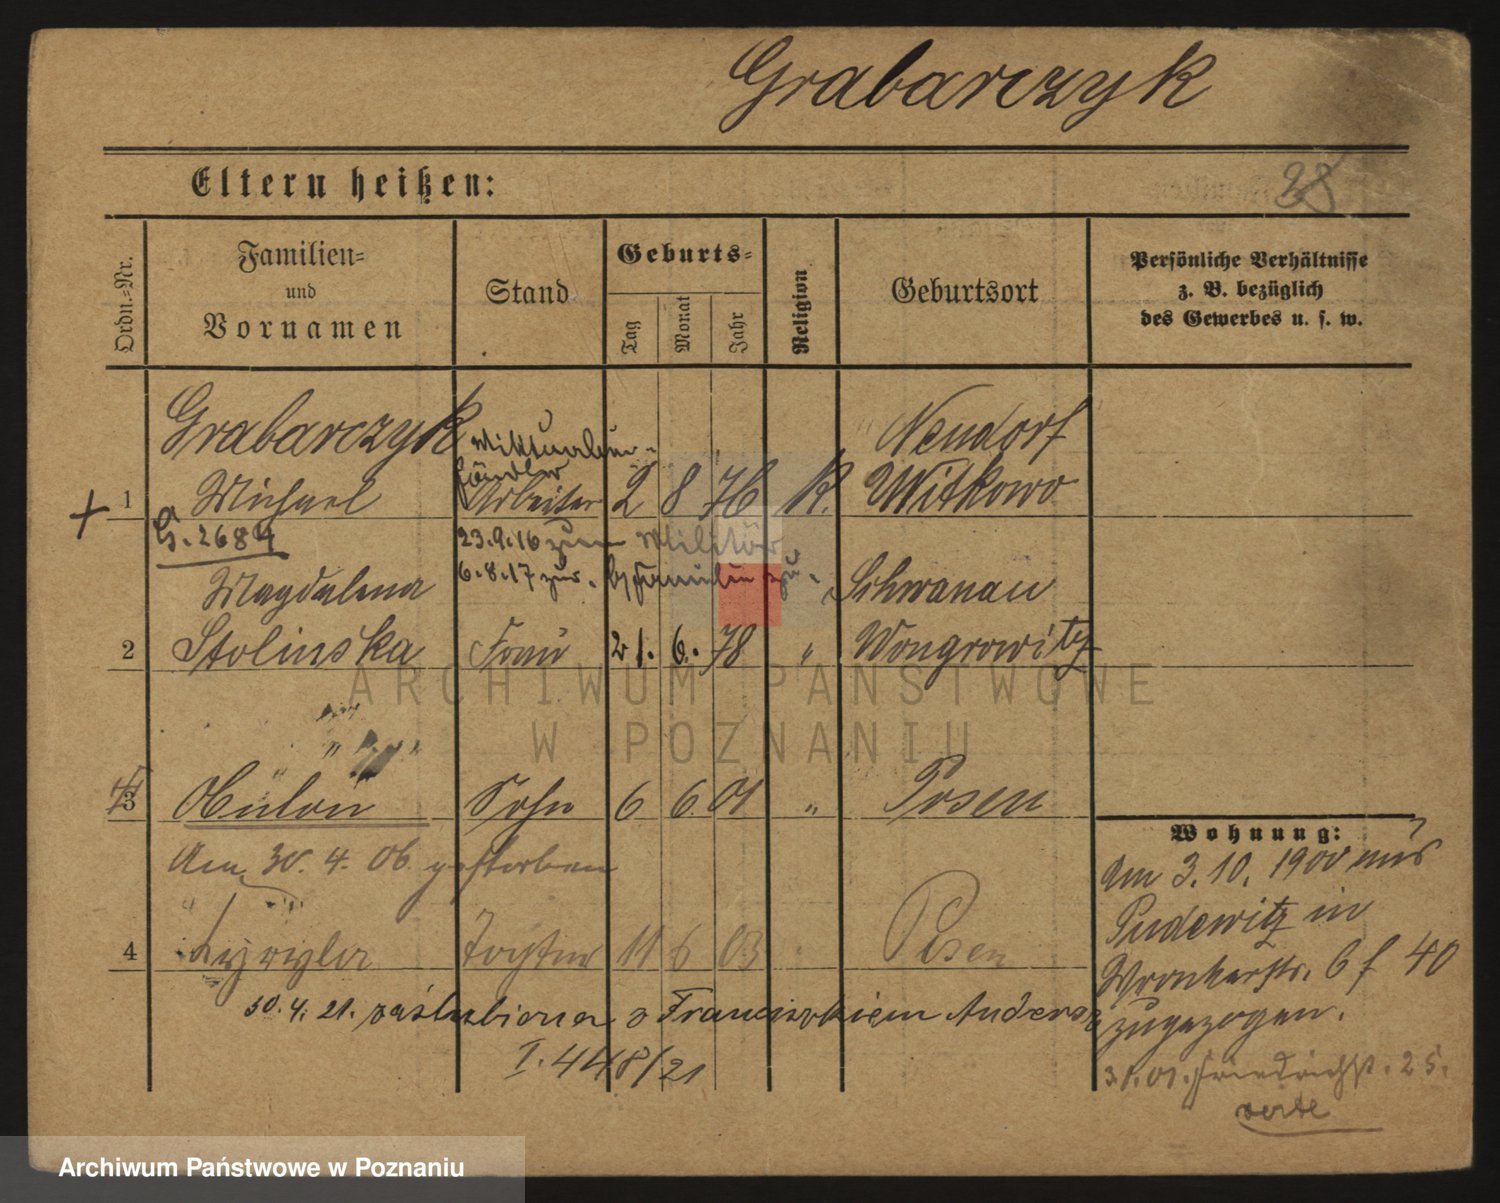 Grabarczyk
Eltern heißen:
28
Ordn.-Nr.
Familien-
und
Vornamen
Stand
Geburts-
Tag
Monat
Jahr
Religion
Geburtsort
Persönliche Verhältnisse
z. B. bezüglich
des Gewerbes u. s. w.
Grabarczyk
Michael
Viktualien-
händler
Arbeiter
1
2 8 76
K.
Neudorf
Witkowo
G. 2684
23.9.16 zum Militär
6.8.17 zur.
2
Magdalena
Stolinska
Frau
21. 6. 78
"
Schwanau
Wongrowitz
3
Sohn
6 6 01
"
Posen
Am 30. 4. 06. gestorben
4
Tochter
11 6 03
Posen
30. 4. 21. zaślubiona z Franciszkiem
I. 448/21
Wohnung:
Am 3. 10. 1900 aus
Pudewitz in
Wronkerstr. 6 f 40
zugezogen.
Friedrichst. 25.
verte
ARCHIWUM PAŃSTWOWE
W POZNANIU
Archiwum Państwowe w Poznaniu